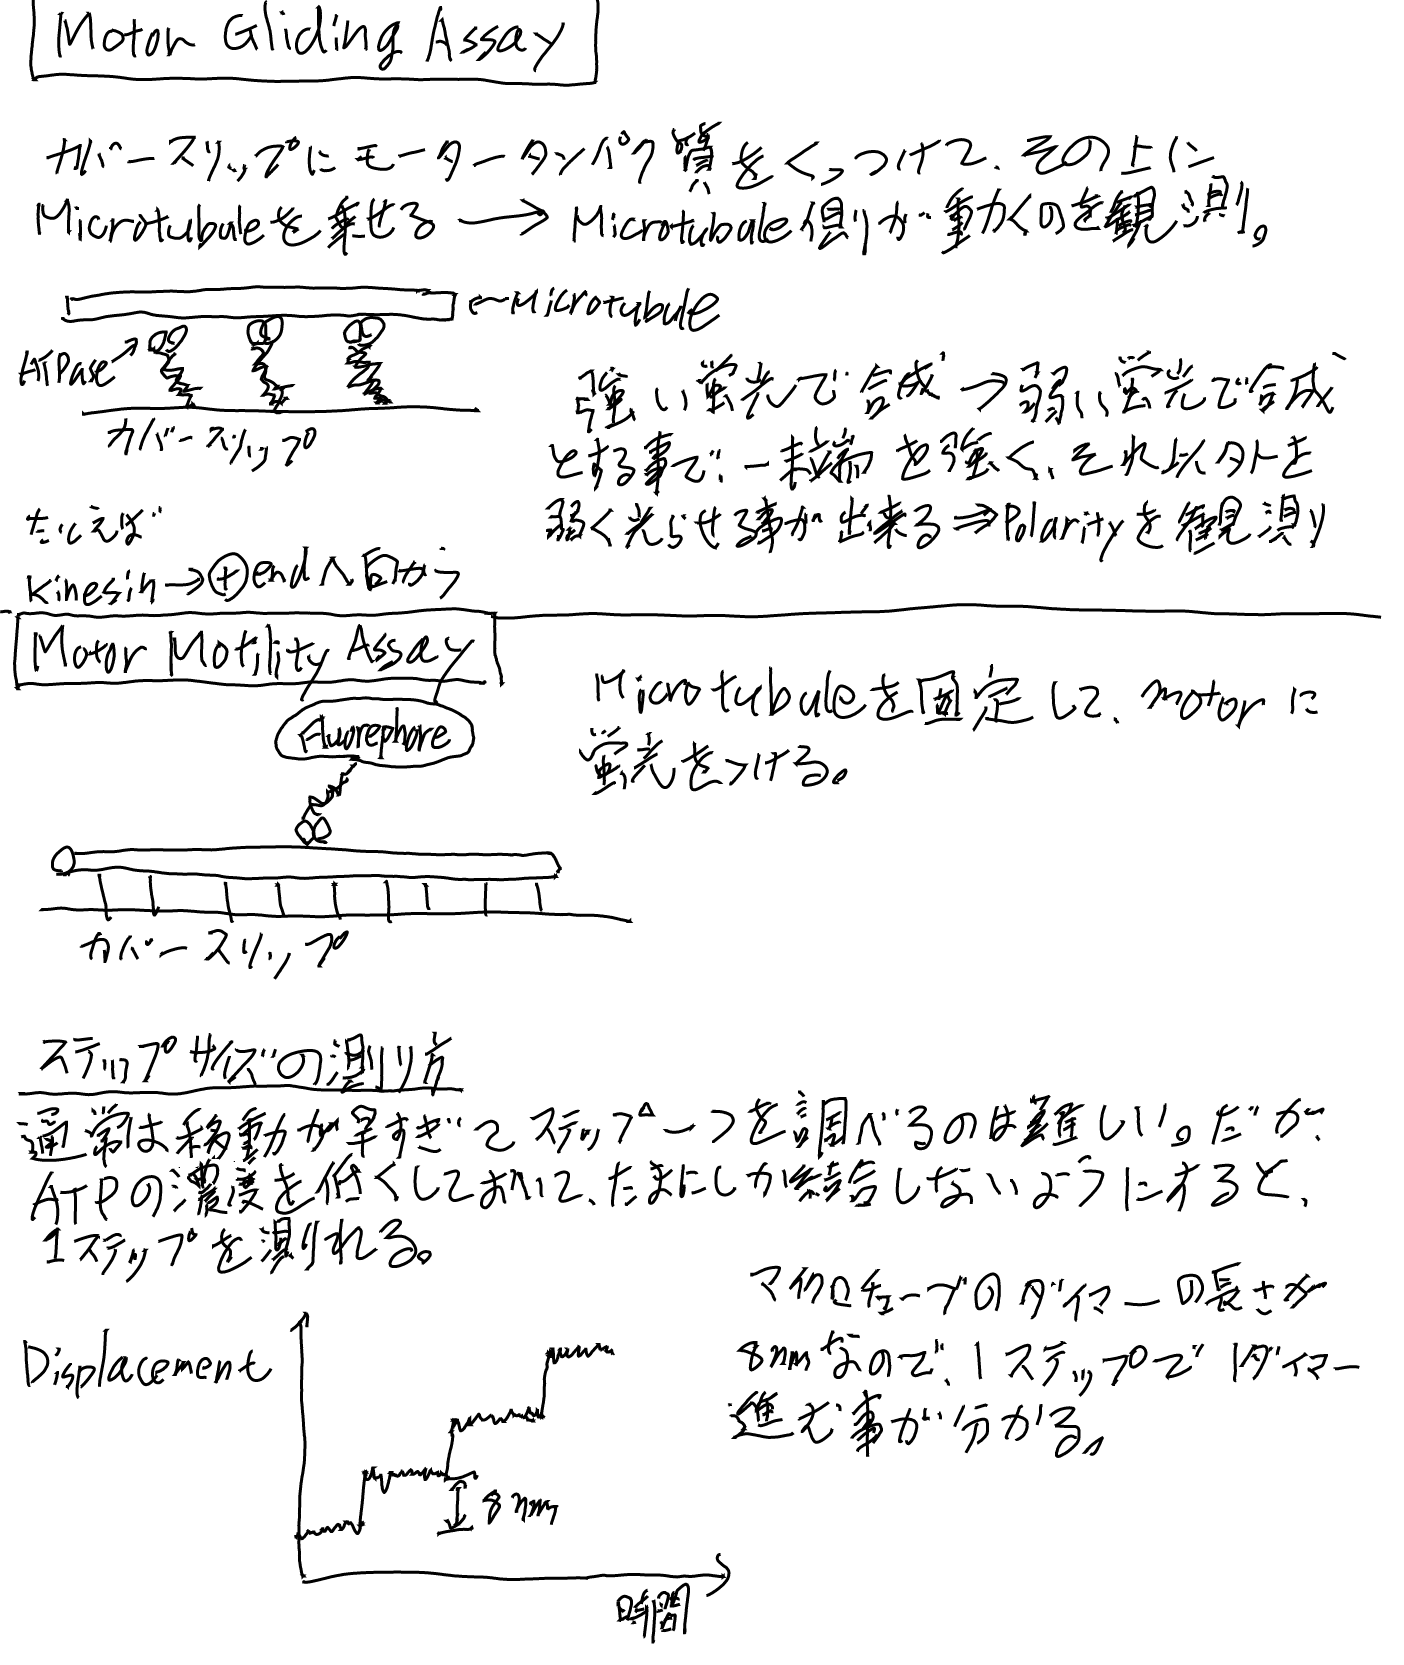 Motor Gliding Assay
カバースリップにモータータンパク質をくっつけて、その上に
Microtubuleを乗せる → Microtubule側が動くのを観測。
←Microtubule
ATPase→
カバースリップ
強い蛍光で合成→弱い蛍光で合成
とする事で、一末端を強く、それ以外を
弱く光らせる事が出来る⇒Polarityを観測
たとえば
Kinesin→⊕endへ向かう
Motor Motility Assay
Fluorephore
Microtubuleを固定して、motorに
蛍光をつける。
カバースリップ
ステップサイズの測り方
通常は移動が早すぎてステップ一つを調べるのは難しい。だが、
ATPの濃度を低くしておいて、たまにしか結合しないようにすると、
1ステップを測れる。
マイクロチューブのダイマーの長さが
8nmなので、1ステップで1ダイマー
進む事が分かる。
Displacement
8nm
時間